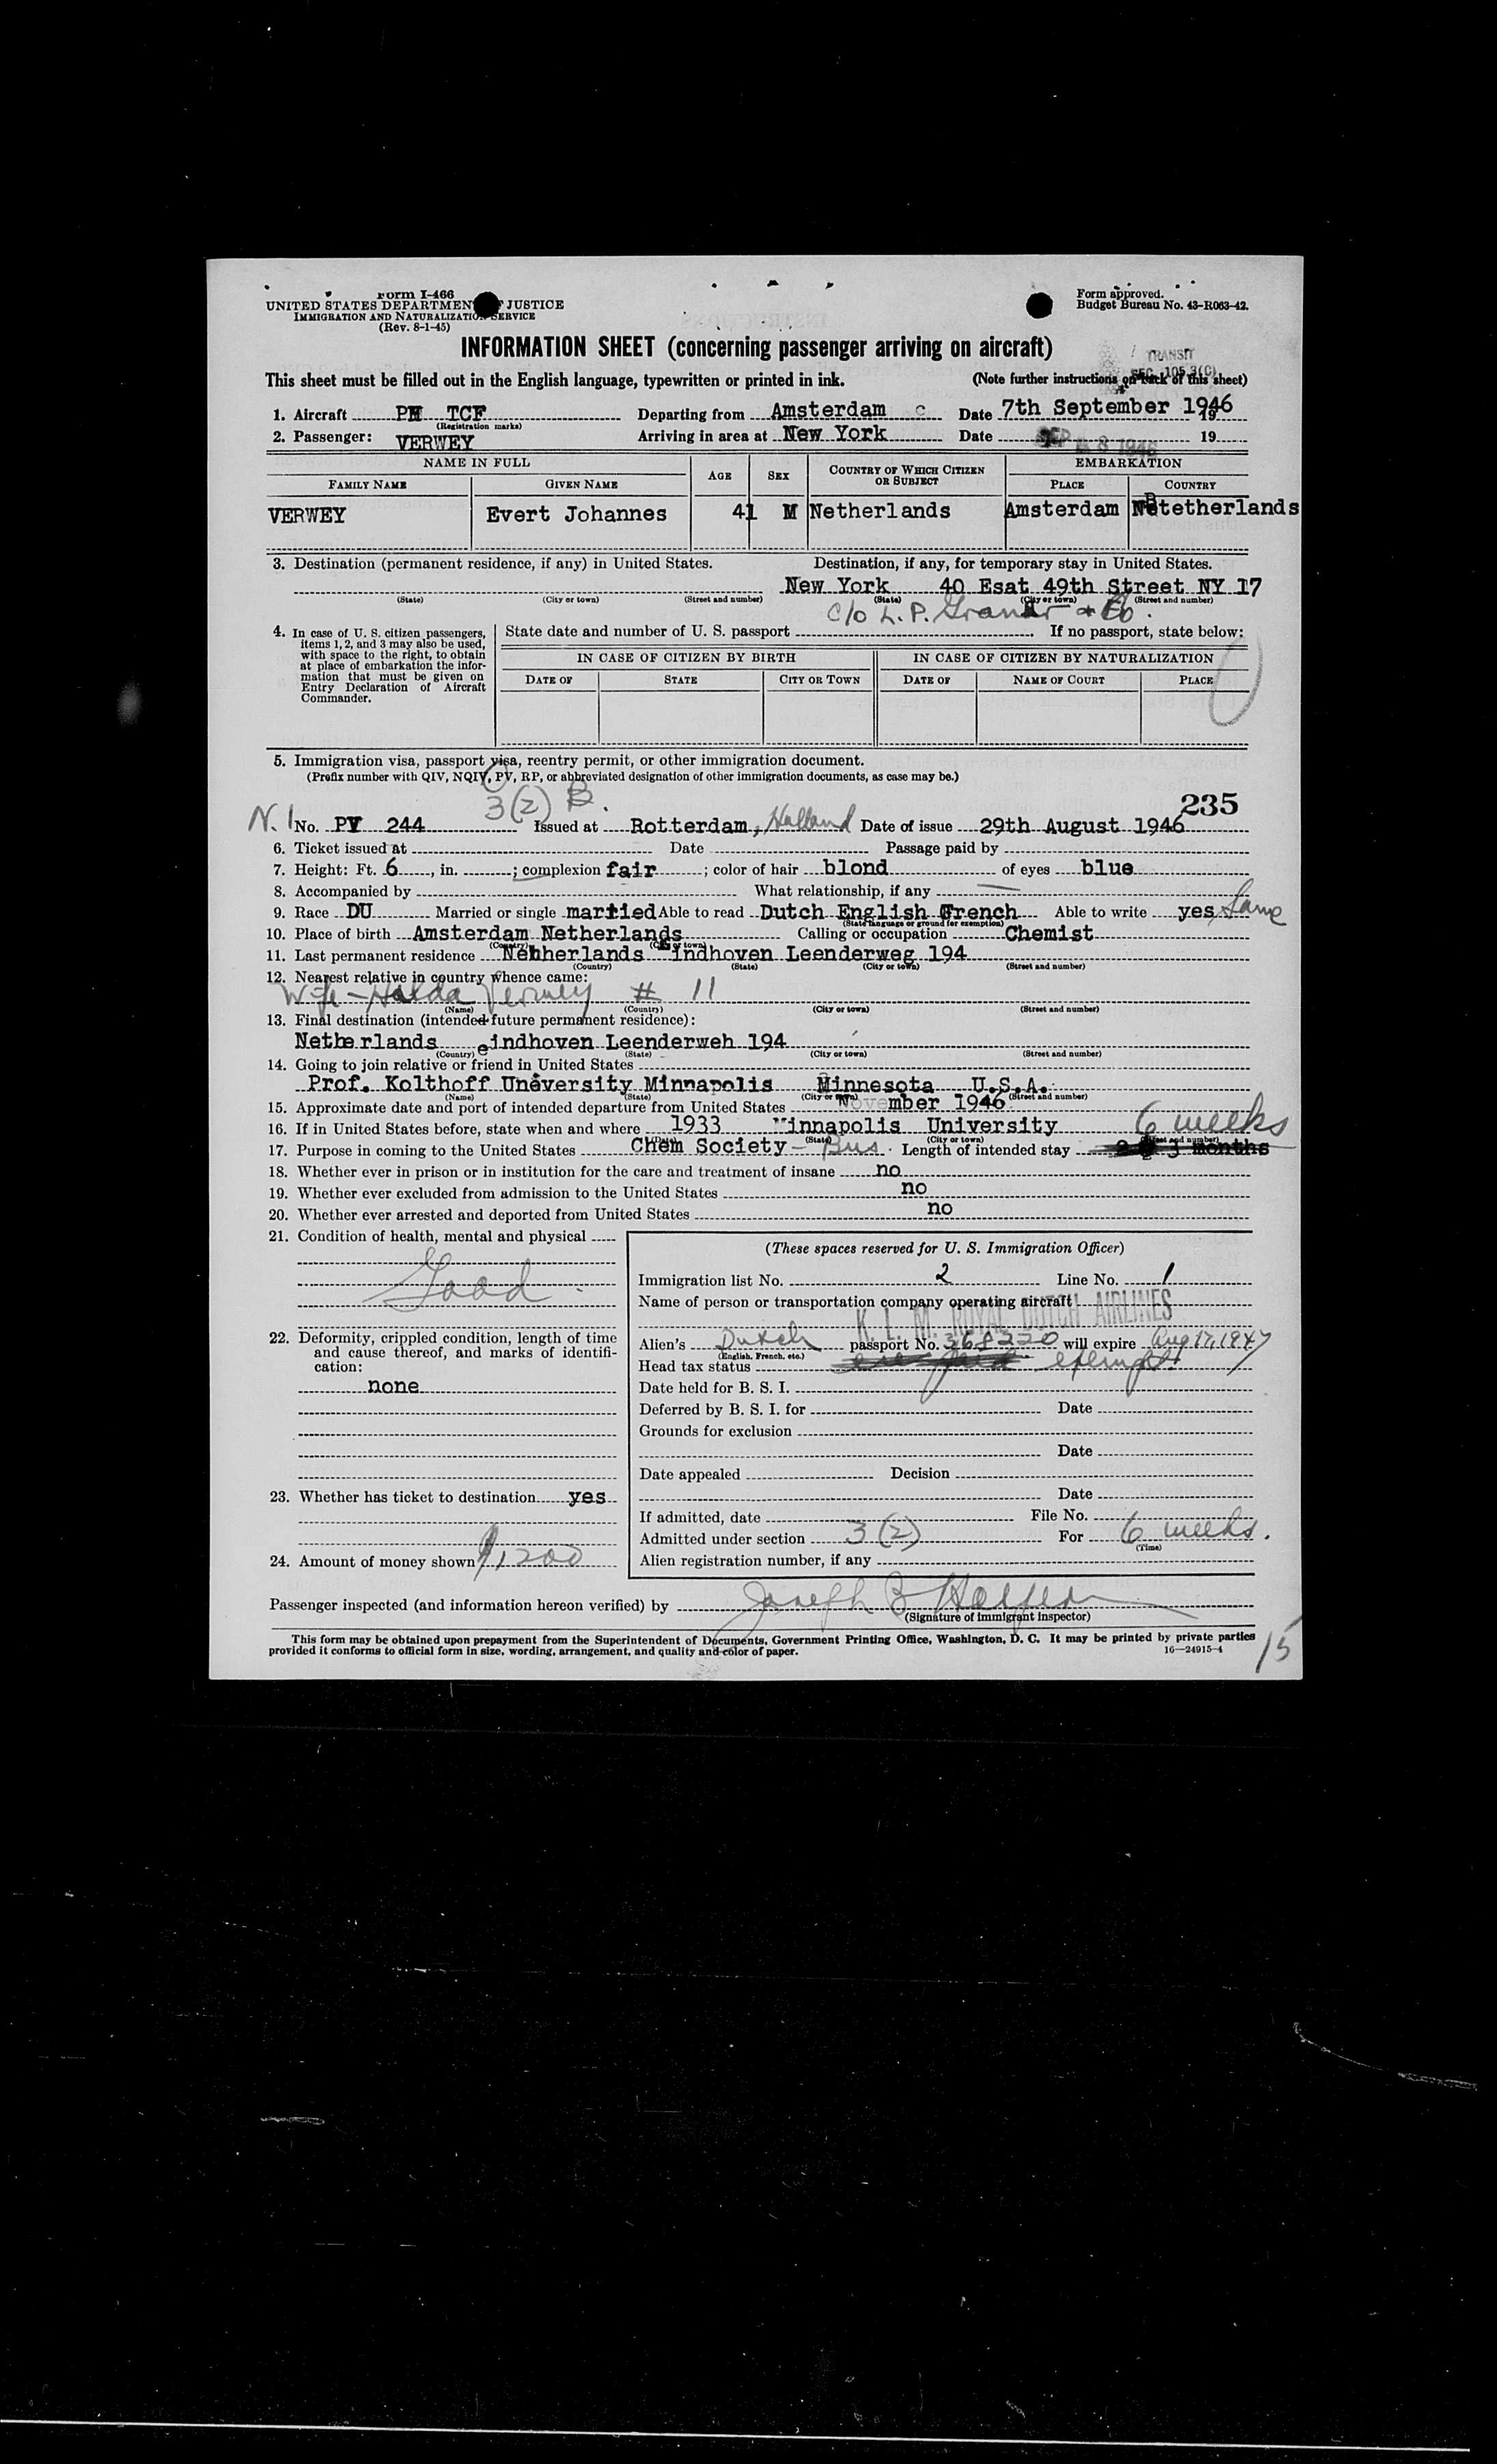 Form I-466
UNITED STATES DEPARTMENT OF JUSTICE
IMMIGRATION AND NATURALIZATION SERVICE
(Rev. 8-1-45)
Form approved.
Budget Bureau No. 43-R063-42.
INFORMATION SHEET (concerning passenger arriving on aircraft)
TRANSIT
SEC. 105.3(C)
This sheet must be filled out in the English language, typewritten or printed in ink. (Note further instructions on back of this sheet)
1. Aircraft PH TCF Departing from Amsterdam C Date 7th September 1946
(Registration marks)
2. Passenger: VERWEY Arriving in area at New York Date SEP 8 1946 19
NAME IN FULL AGE SEX COUNTRY OF WHICH CITIZEN OR SUBJECT EMBARKATION
FAMILY NAME GIVEN NAME PLACE COUNTRY
VERWEY Evert Johannes 41 M Netherlands Amsterdam Netetherlands
3. Destination (permanent residence, if any) in United States. Destination, if any, for temporary stay in United States.
New York 40 Esat 49th Street NY 17
(State) (City or town) (Street and number) (State) (City or town) (Street and number)
c/o L. P. & Co.
4. In case of U. S. citizen passengers, items 1, 2, and 3 may also be used, with space to the right, to obtain at place of embarkation the information that must be given on Entry Declaration of Aircraft Commander.
State date and number of U. S. passport If no passport, state below:
IN CASE OF CITIZEN BY BIRTH IN CASE OF CITIZEN BY NATURALIZATION
DATE OF STATE CITY OR TOWN DATE OF NAME OF COURT PLACE
5. Immigration visa, passport visa, reentry permit, or other immigration document.
(Prefix number with QIV, NQIV, PV, RP, or abbreviated designation of other immigration documents, as case may be.)
3(2) B.
235
N. 1 No. PV 244 Issued at Rotterdam, Holland Date of issue 29th August 1946
6. Ticket issued at Date Passage paid by
7. Height: Ft. 6, in. ; complexion fair ; color of hair blond of eyes blue
8. Accompanied by What relationship, if any
9. Race DU Married or single married Able to read Dutch English French Able to write yes Same
(State language or ground for exemption)
10. Place of birth Amsterdam Netherlands Calling or occupation Chemist
(Country) (City or town)
11. Last permanent residence Netherlands Eindhoven Leenderweg 194
(Country) (State) (City or town) (Street and number)
12. Nearest relative in country whence came:
Wife - Verwey # 11
(Name) (Country) (City or town) (Street and number)
13. Final destination (intended future permanent residence):
Netherlands eindhoven Leenderweh 194
(Country) (State) (City or town) (Street and number)
14. Going to join relative or friend in United States
Prof. Kolthoff University Minnapolis Minnesota U.S.A.
(Name) (State) (City or town) (Street and number)
15. Approximate date and port of intended departure from United States November 1946
16. If in United States before, state when and where 1933 Minnapolis University
(Date) (State) (City or town) (Street and number)
6 weeks
17. Purpose in coming to the United States Chem Society - Bus. Length of intended stay 3 months
18. Whether ever in prison or in institution for the care and treatment of insane no
19. Whether ever excluded from admission to the United States no
20. Whether ever arrested and deported from United States no
21. Condition of health, mental and physical
Good
22. Deformity, crippled condition, length of time and cause thereof, and marks of identification:
none
23. Whether has ticket to destination yes
24. Amount of money shown $1,200
(These spaces reserved for U. S. Immigration Officer)
Immigration list No. 2 Line No. 1
Name of person or transportation company operating aircraft
K. L. M. ROYAL DUTCH AIRLINES
Alien's Dutch passport No. 368220 will expire Aug 17, 1947
(English, French, etc.)
Head tax status exempt
Date held for B. S. I.
Deferred by B. S. I. for Date
Grounds for exclusion
Date
Date appealed Decision
Date
If admitted, date File No.
Admitted under section 3(2) For 6 weeks.
(Time)
Alien registration number, if any
Passenger inspected (and information hereon verified) by Joseph B
(Signature of immigrant inspector)
This form may be obtained upon prepayment from the Superintendent of Documents, Government Printing Office, Washington, D. C. It may be printed by private parties
provided it conforms to official form in size, wording, arrangement, and quality and color of paper. 16—24915-4
15